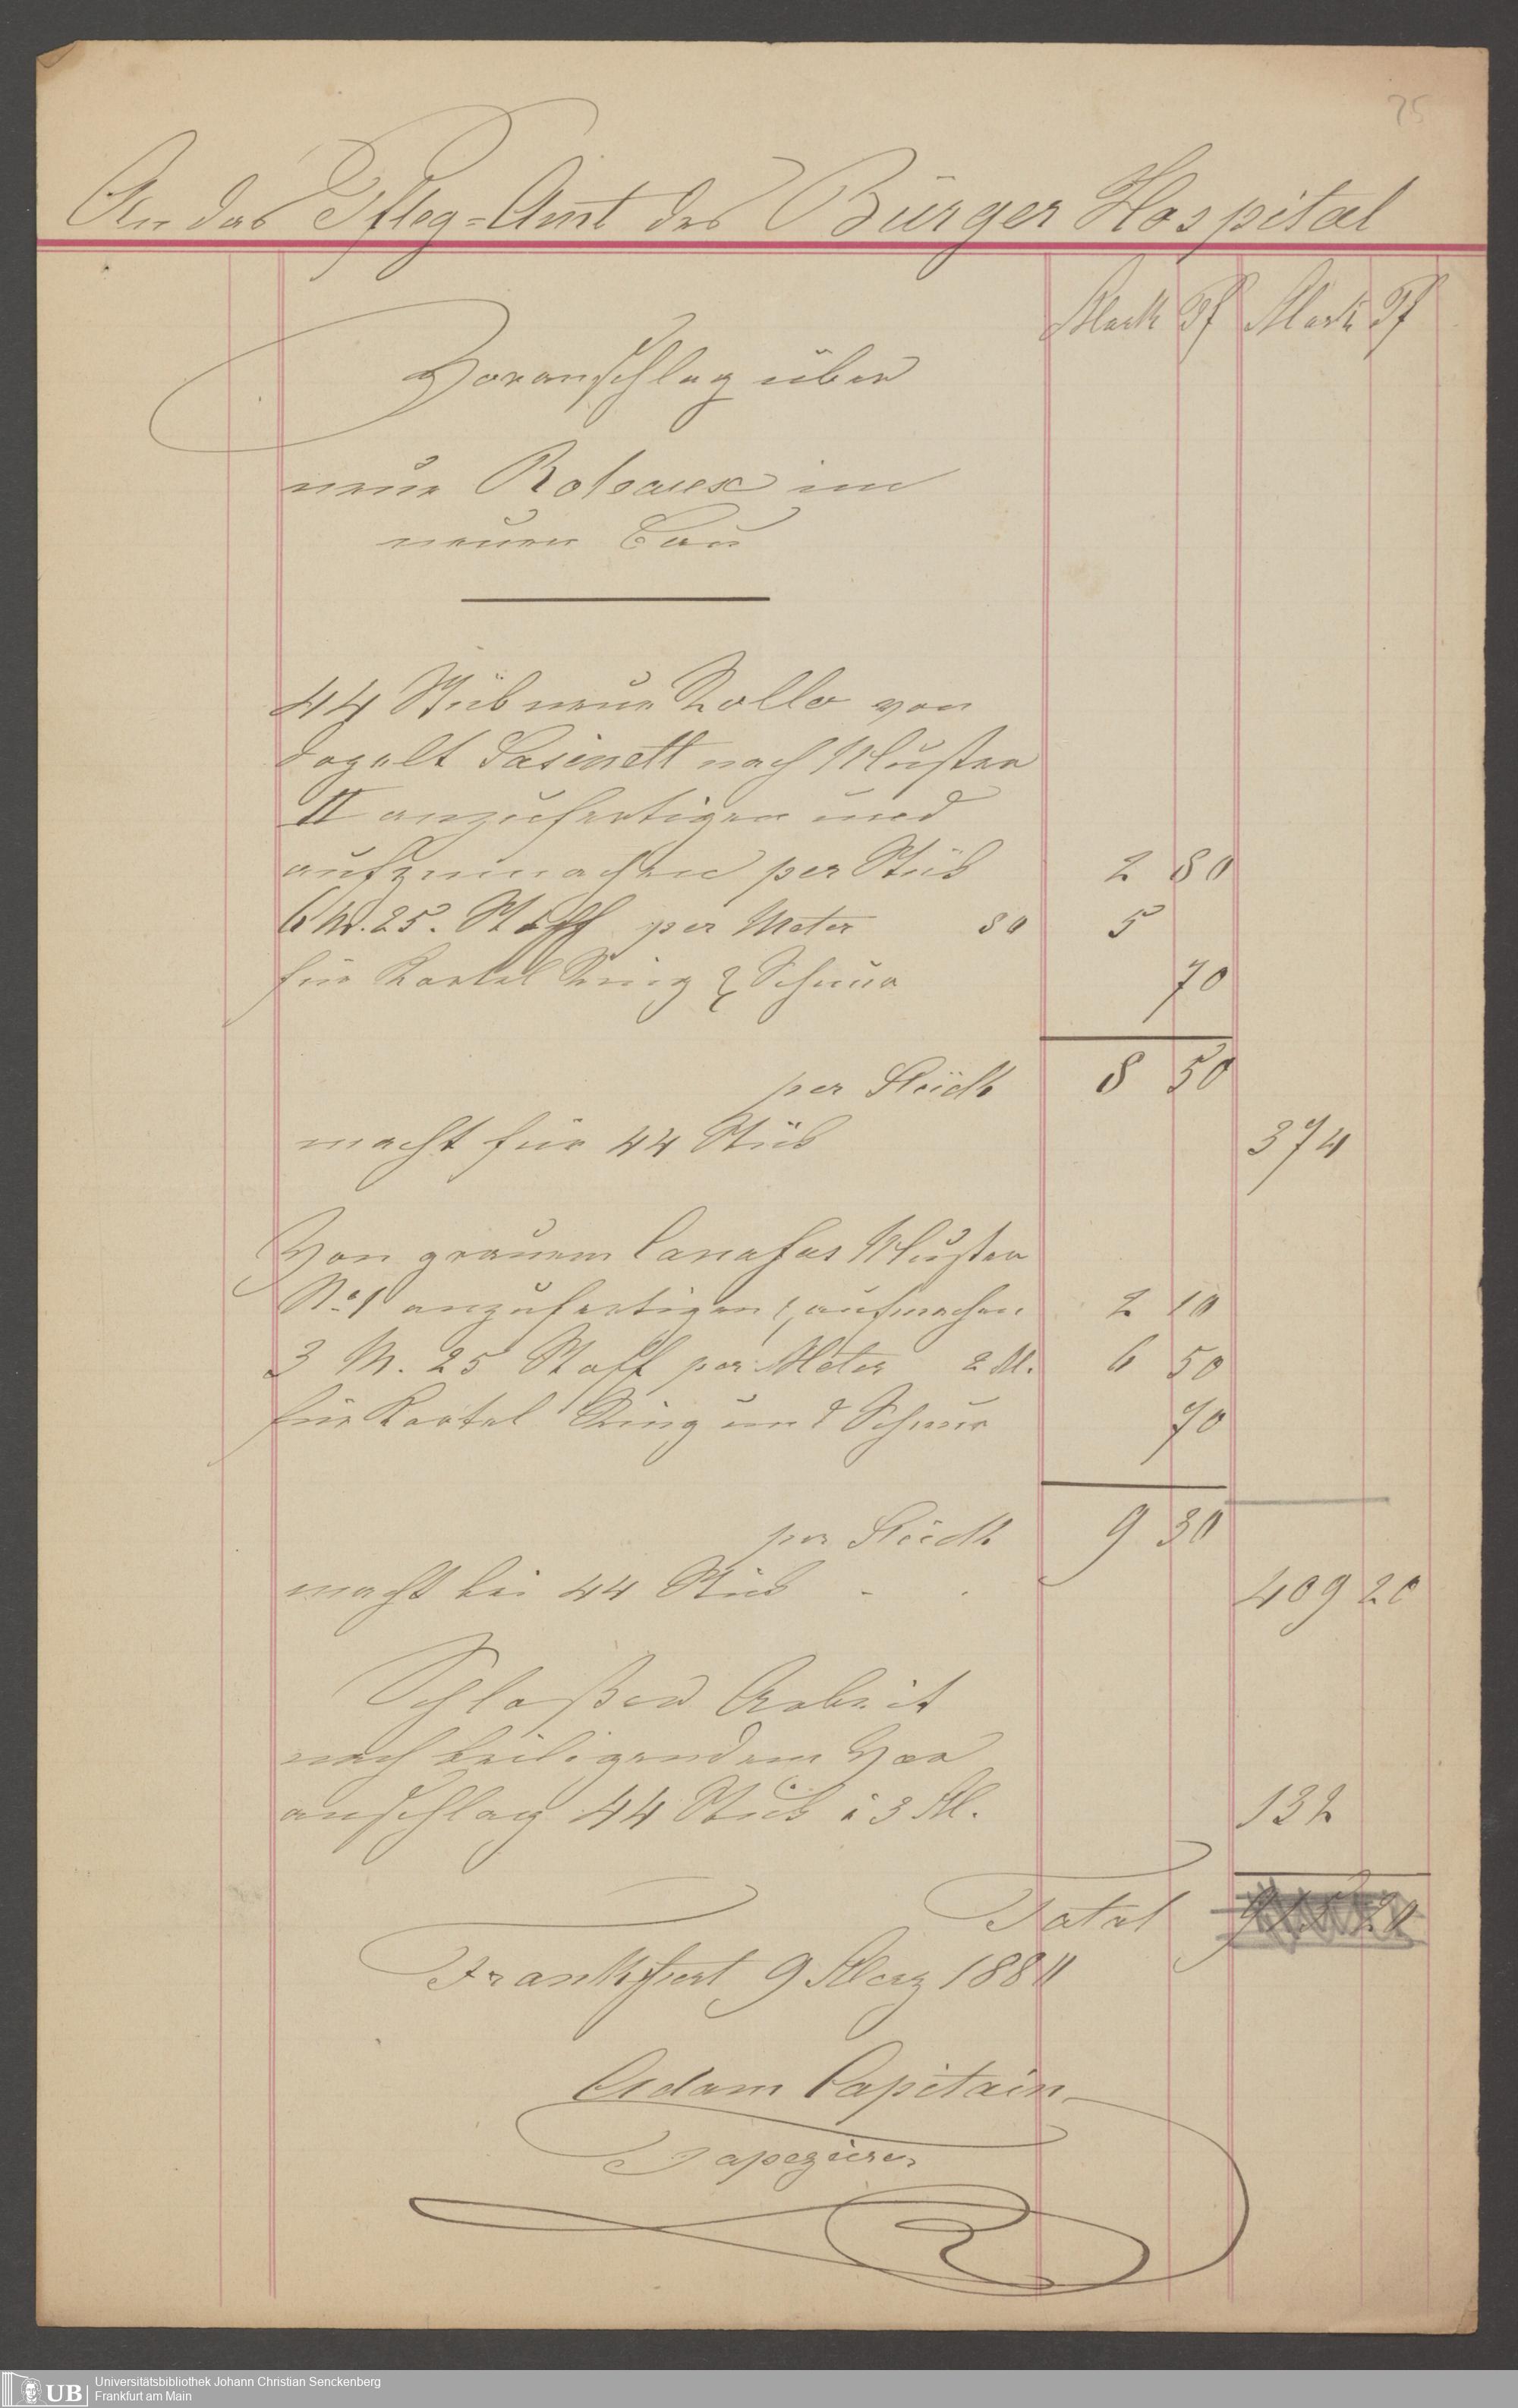 75
An das Pfleg=Amt des Bürger Hospital
Mark Pf Mark Pf
Voranschlag über
neue Roleaux im
neuen Bau
44 Stück neue Rollo von
Satinett nach Muster
II anzufertigen und
aufzumachen per Stück 2 80
6 M. 25. Stoff per Meter 80 5
für Kordel Ring & Schnur 70
per Stück 8 50
macht für 44 Stück 374
Von grauem Canafas Muster
No 1 anzufertigen & aufmachen 2 10
3 M. 25 Stoff per Meter 2 M. 6 50
für Kordel Ring und Schnur 70
per Stück 9 30
macht bei 44 Stück - . 409 20
Schloßer Arbeit
nach beiligendem Vor
anschlag 44 Stück à 3 M. 132
Total 915 20
Frankfurt 9 Merz 1884
Adam Capitain
Tapezierer
UB Universitätsbibliothek Johann Christian Senckenberg
Frankfurt am Main